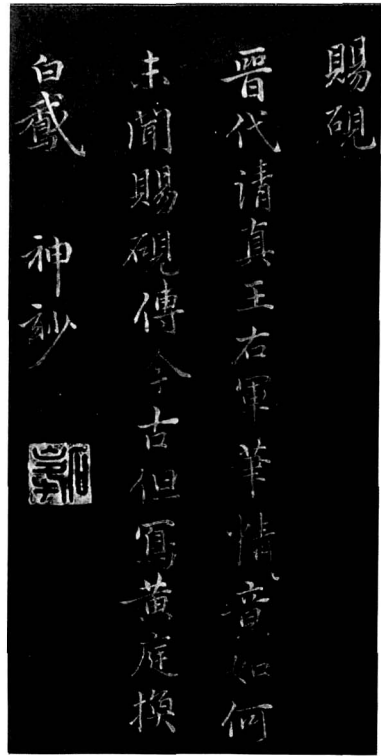 賜硯
晉代清真王右軍筆情如何
未聞賜硯傳今古但寫黃庭換
白鵞 神妙